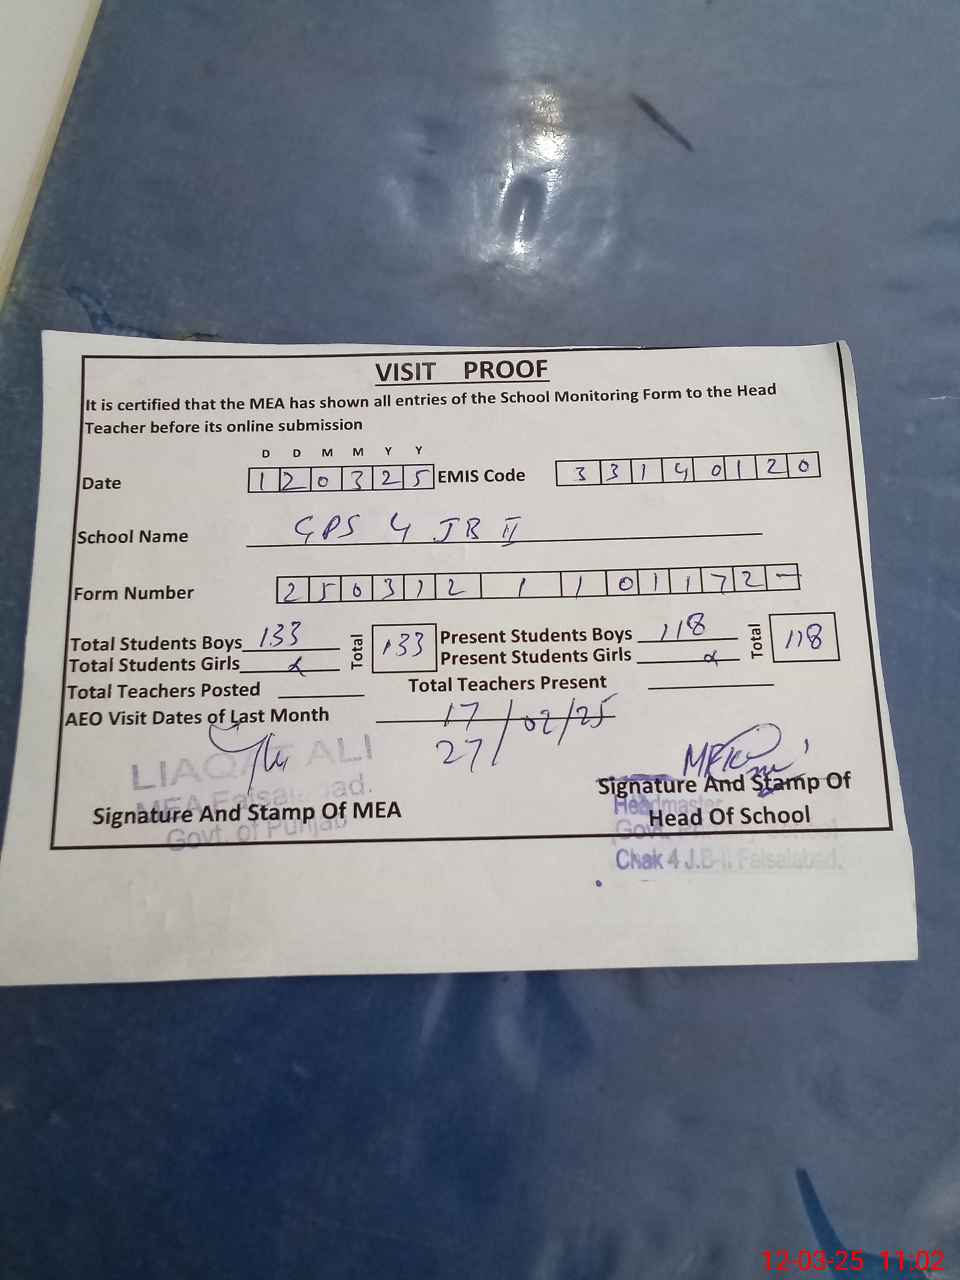 VISIT PROOF
It is certified that the MEA has shown all entries of the School Monitoring Form to the Head
Teacher before its online submission
D D M M Y Y
Date 1 2 0 3 2 5 EMIS Code 3 3 1 4 0 1 2 0
School Name GPS 4 JB II
Form Number 2 5 0 3 1 2 1 1 0 1 1 7 2 —
Total Students Boys 133 Total 133 Present Students Boys 118 Total 118
Total Students Girls Present Students Girls
Total Teachers Posted Total Teachers Present
AEO Visit Dates of Last Month 17/02/25
27
LIAQAT ALI
MEA Faisalabad.
Govt. of Punjab
Signature And Stamp Of MEA
Signature And Stamp Of
Head Of School
Headmaster
Govt. School
Chak 4 J.B-II Faisalabad.
12-03-25 11:02